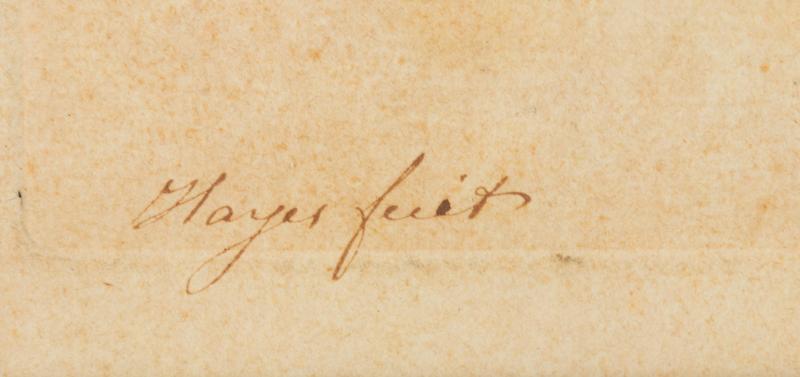 Hayes fecit